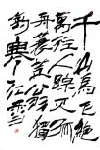 千山鳥飛絕
萬徑人踪滅孤
舟蓑笠翁獨
釣寒江雪